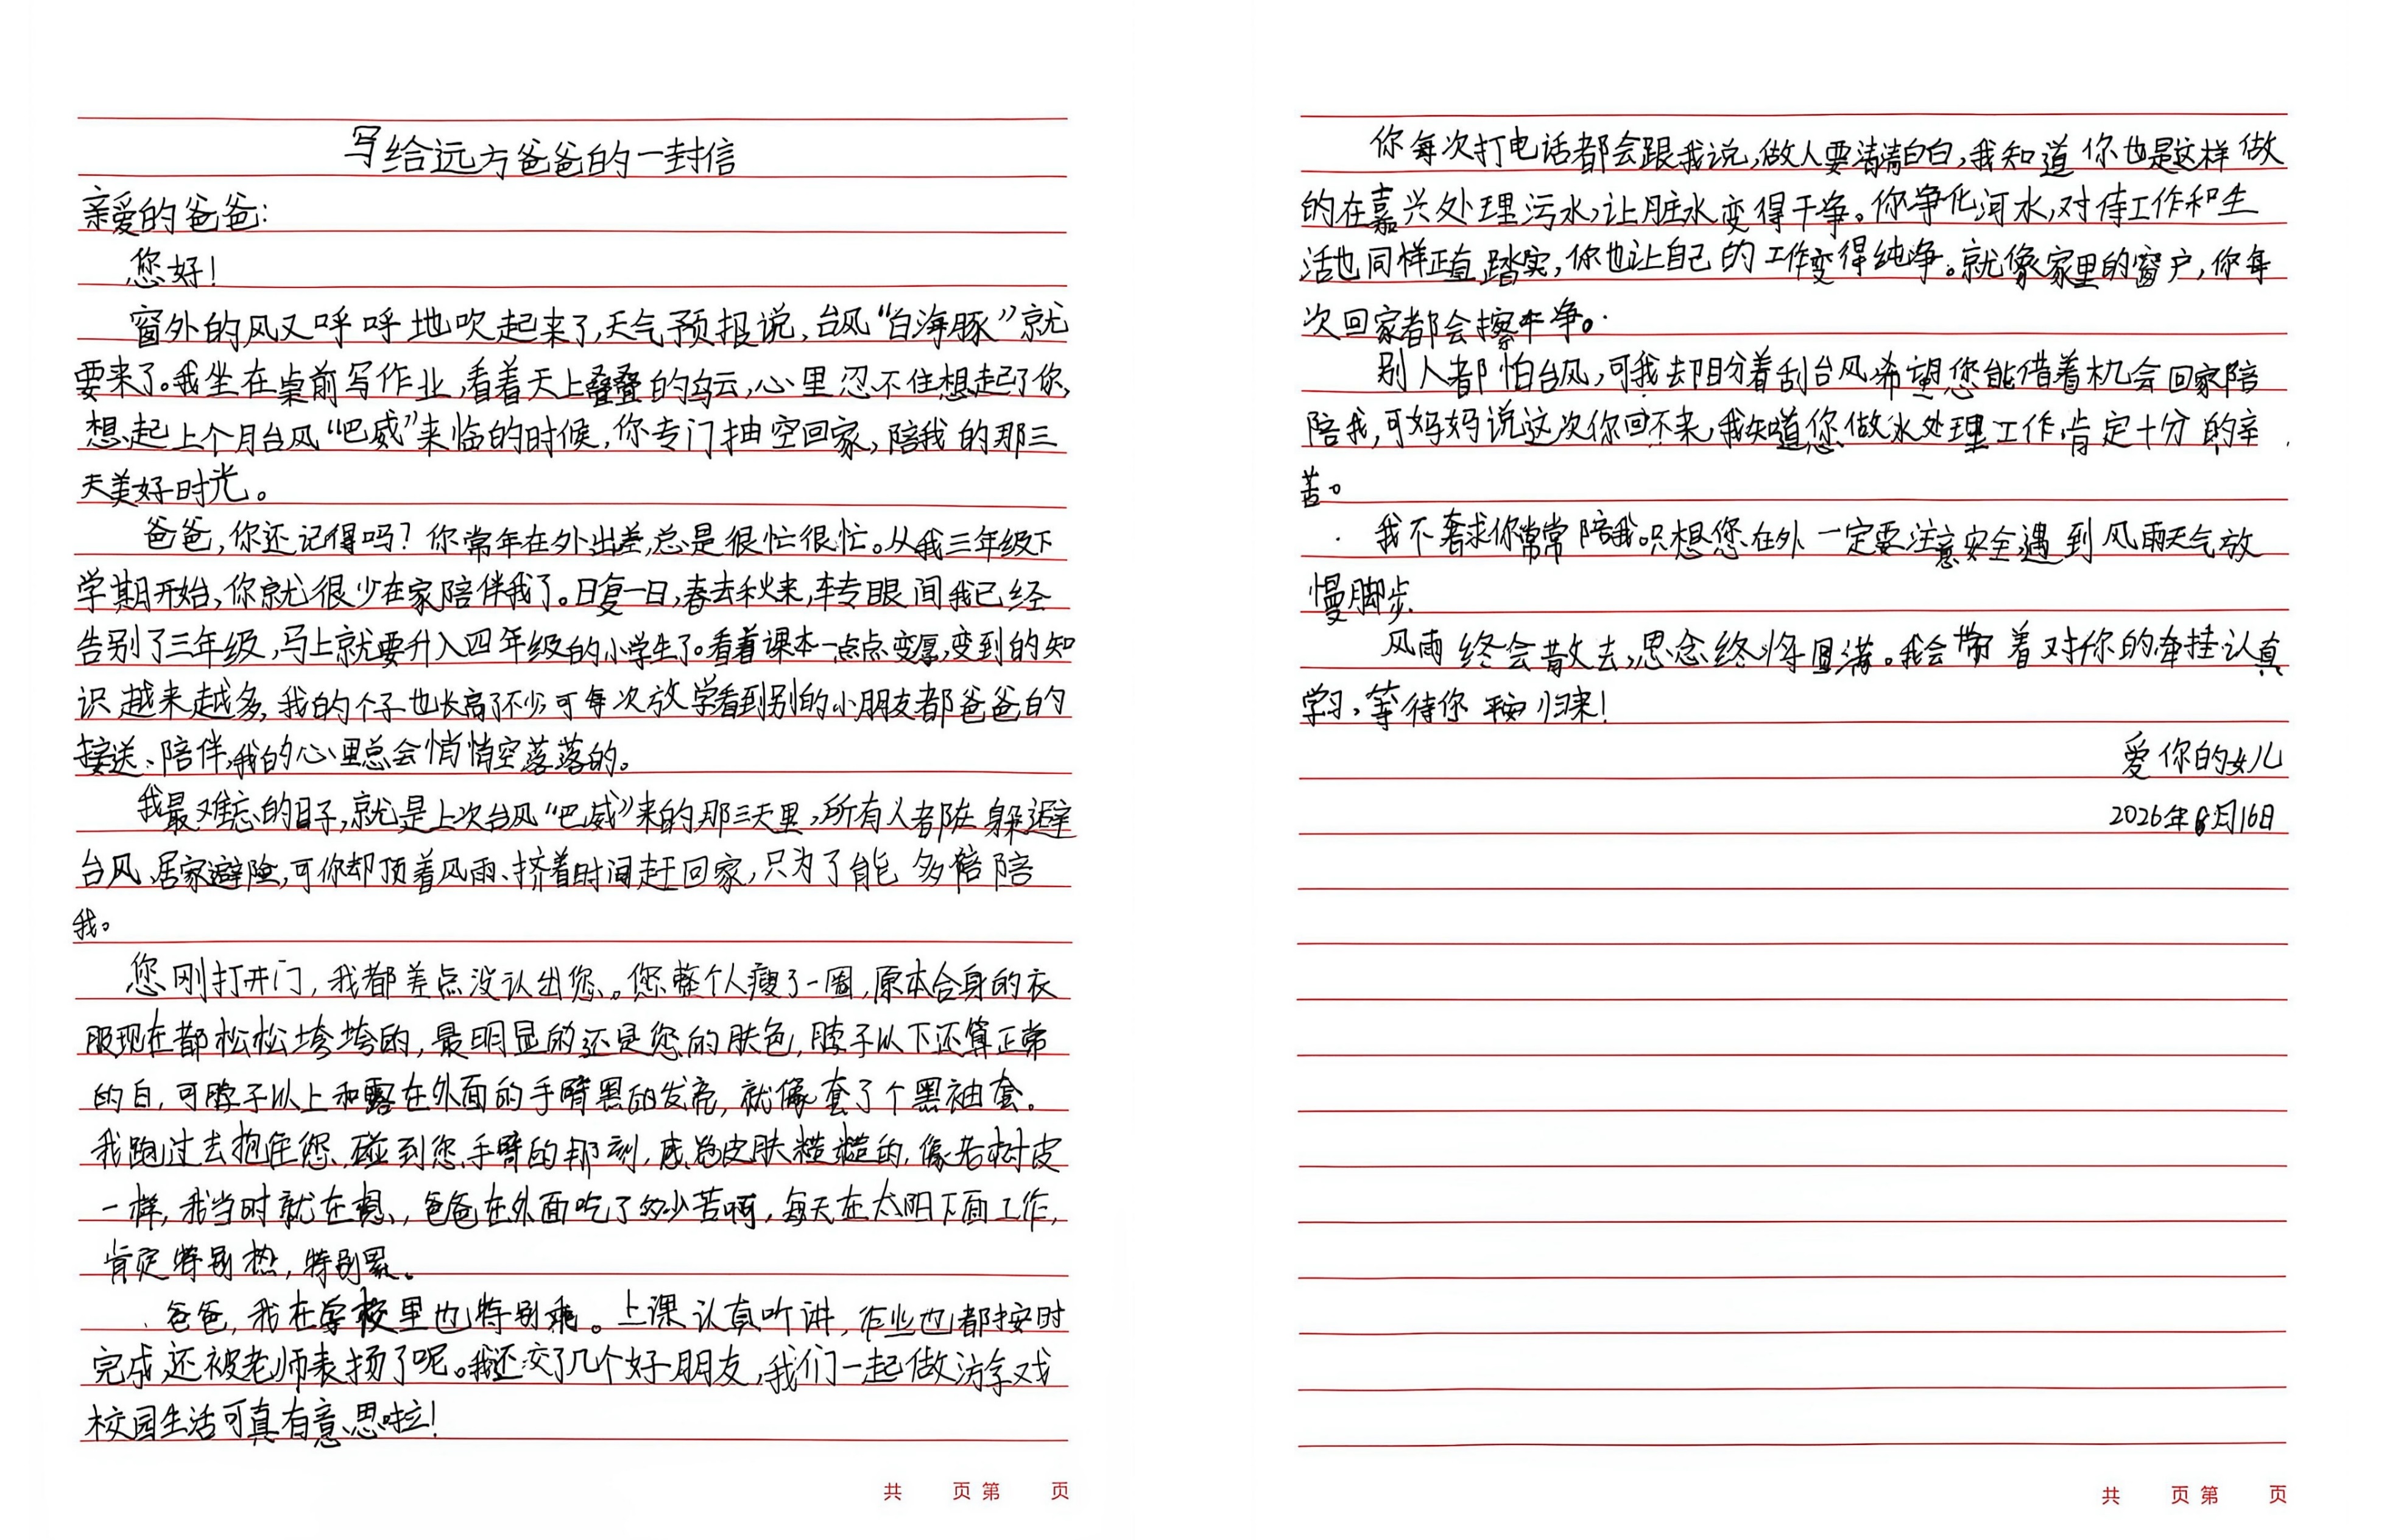 写给远方爸爸的一封信
亲爱的爸爸：
您好！
窗外的风又呼呼地吹起来了，天气预报说，台风“白海豚”就
要来了。我坐在桌前写作业，看着天上叠叠的乌云，心里忍不住想起了你，
想起上个月台风“巴威”来临的时候，你专门抽空回家，陪我的那三
天美好时光。
爸爸，你还记得吗？你常年在外出差，总是很忙很忙。从我三年级下
学期开始，你就很少在家陪伴我了。日复一日，春去秋来，转眼间我已经
告别了三年级，马上就要升入四年级的小学生了。看着课本一点点变厚，变到的知
识越来越多，我的个子也长高了不少，可每次放学看到别的小朋友都爸爸的
接送、陪伴，我的心里总会悄悄空落落的。
我最难忘的日子，就是上次台风“巴威”来的那三天里，所有人都在躲避
台风、居家避险，可你却顶着风雨、挤着时间赶回家，只为了能多陪陪
我。
您刚打开门，我都差点没认出您。您整个人瘦了一圈，原本合身的衣
服现在都松松垮垮的，最明显的还是您的肤色，脖子以下还算正常
的白，可脖子以上和露在外面的手臂黑的发亮，就像套了个黑袖套。
我跑过去抱住您，碰到您手臂的那刻，感觉皮肤糙糙的，像老树皮
一样，我当时就在想，爸爸在外面吃了多少苦啊，每天在太阳下面工作，
肯定特别热，特别累。
爸爸，我在学校里也特别乖。上课认真听讲，作业也都按时
完成，还被老师表扬了呢。我还交了几个好朋友，我们一起做游戏
校园生活可真有意思啦！
共 页 第 页
你每次打电话都会跟我说，做人要清清白白，我知道你也是这样做
的在嘉兴处理污水，让脏水变得干净。你净化河水，对待工作和生
活也同样正直踏实，你也让自己的工作变得纯净。就像家里的窗户，你每
次回家都会擦干净。
别人都怕台风，可我却盼着刮台风，希望您能借着机会回家陪
陪我，可妈妈说这次你回不来，我知道您做水处理工作，肯定十分的辛
苦。
我不奢求你常常陪我。只想您在外一定要注意安全，遇到风雨天气放
慢脚步
风雨终会散去，思念终将圆满。我会带着对你的牵挂认真
学习，等待你平安归来！
爱你的女儿
2026年8月16日
共 页 第 页